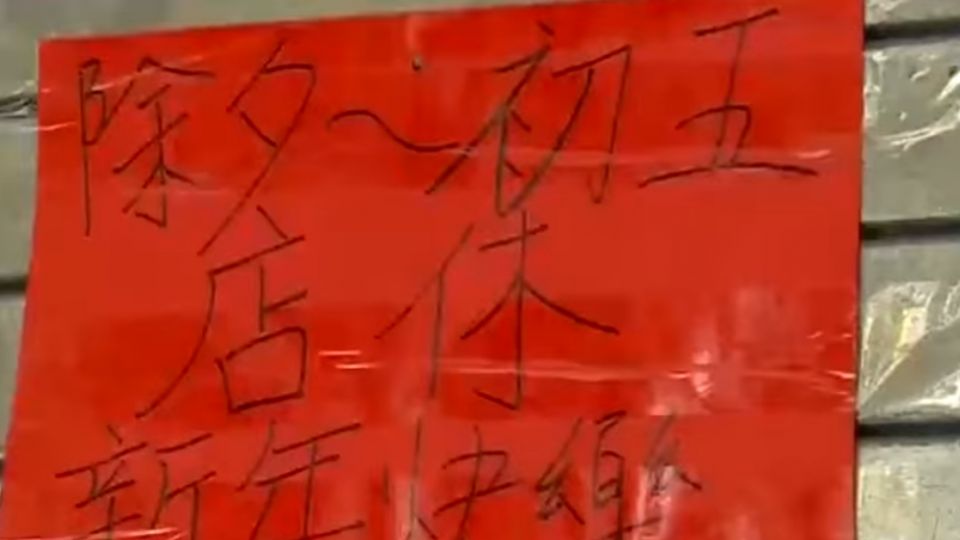 除夕~初五
店休
新年快樂